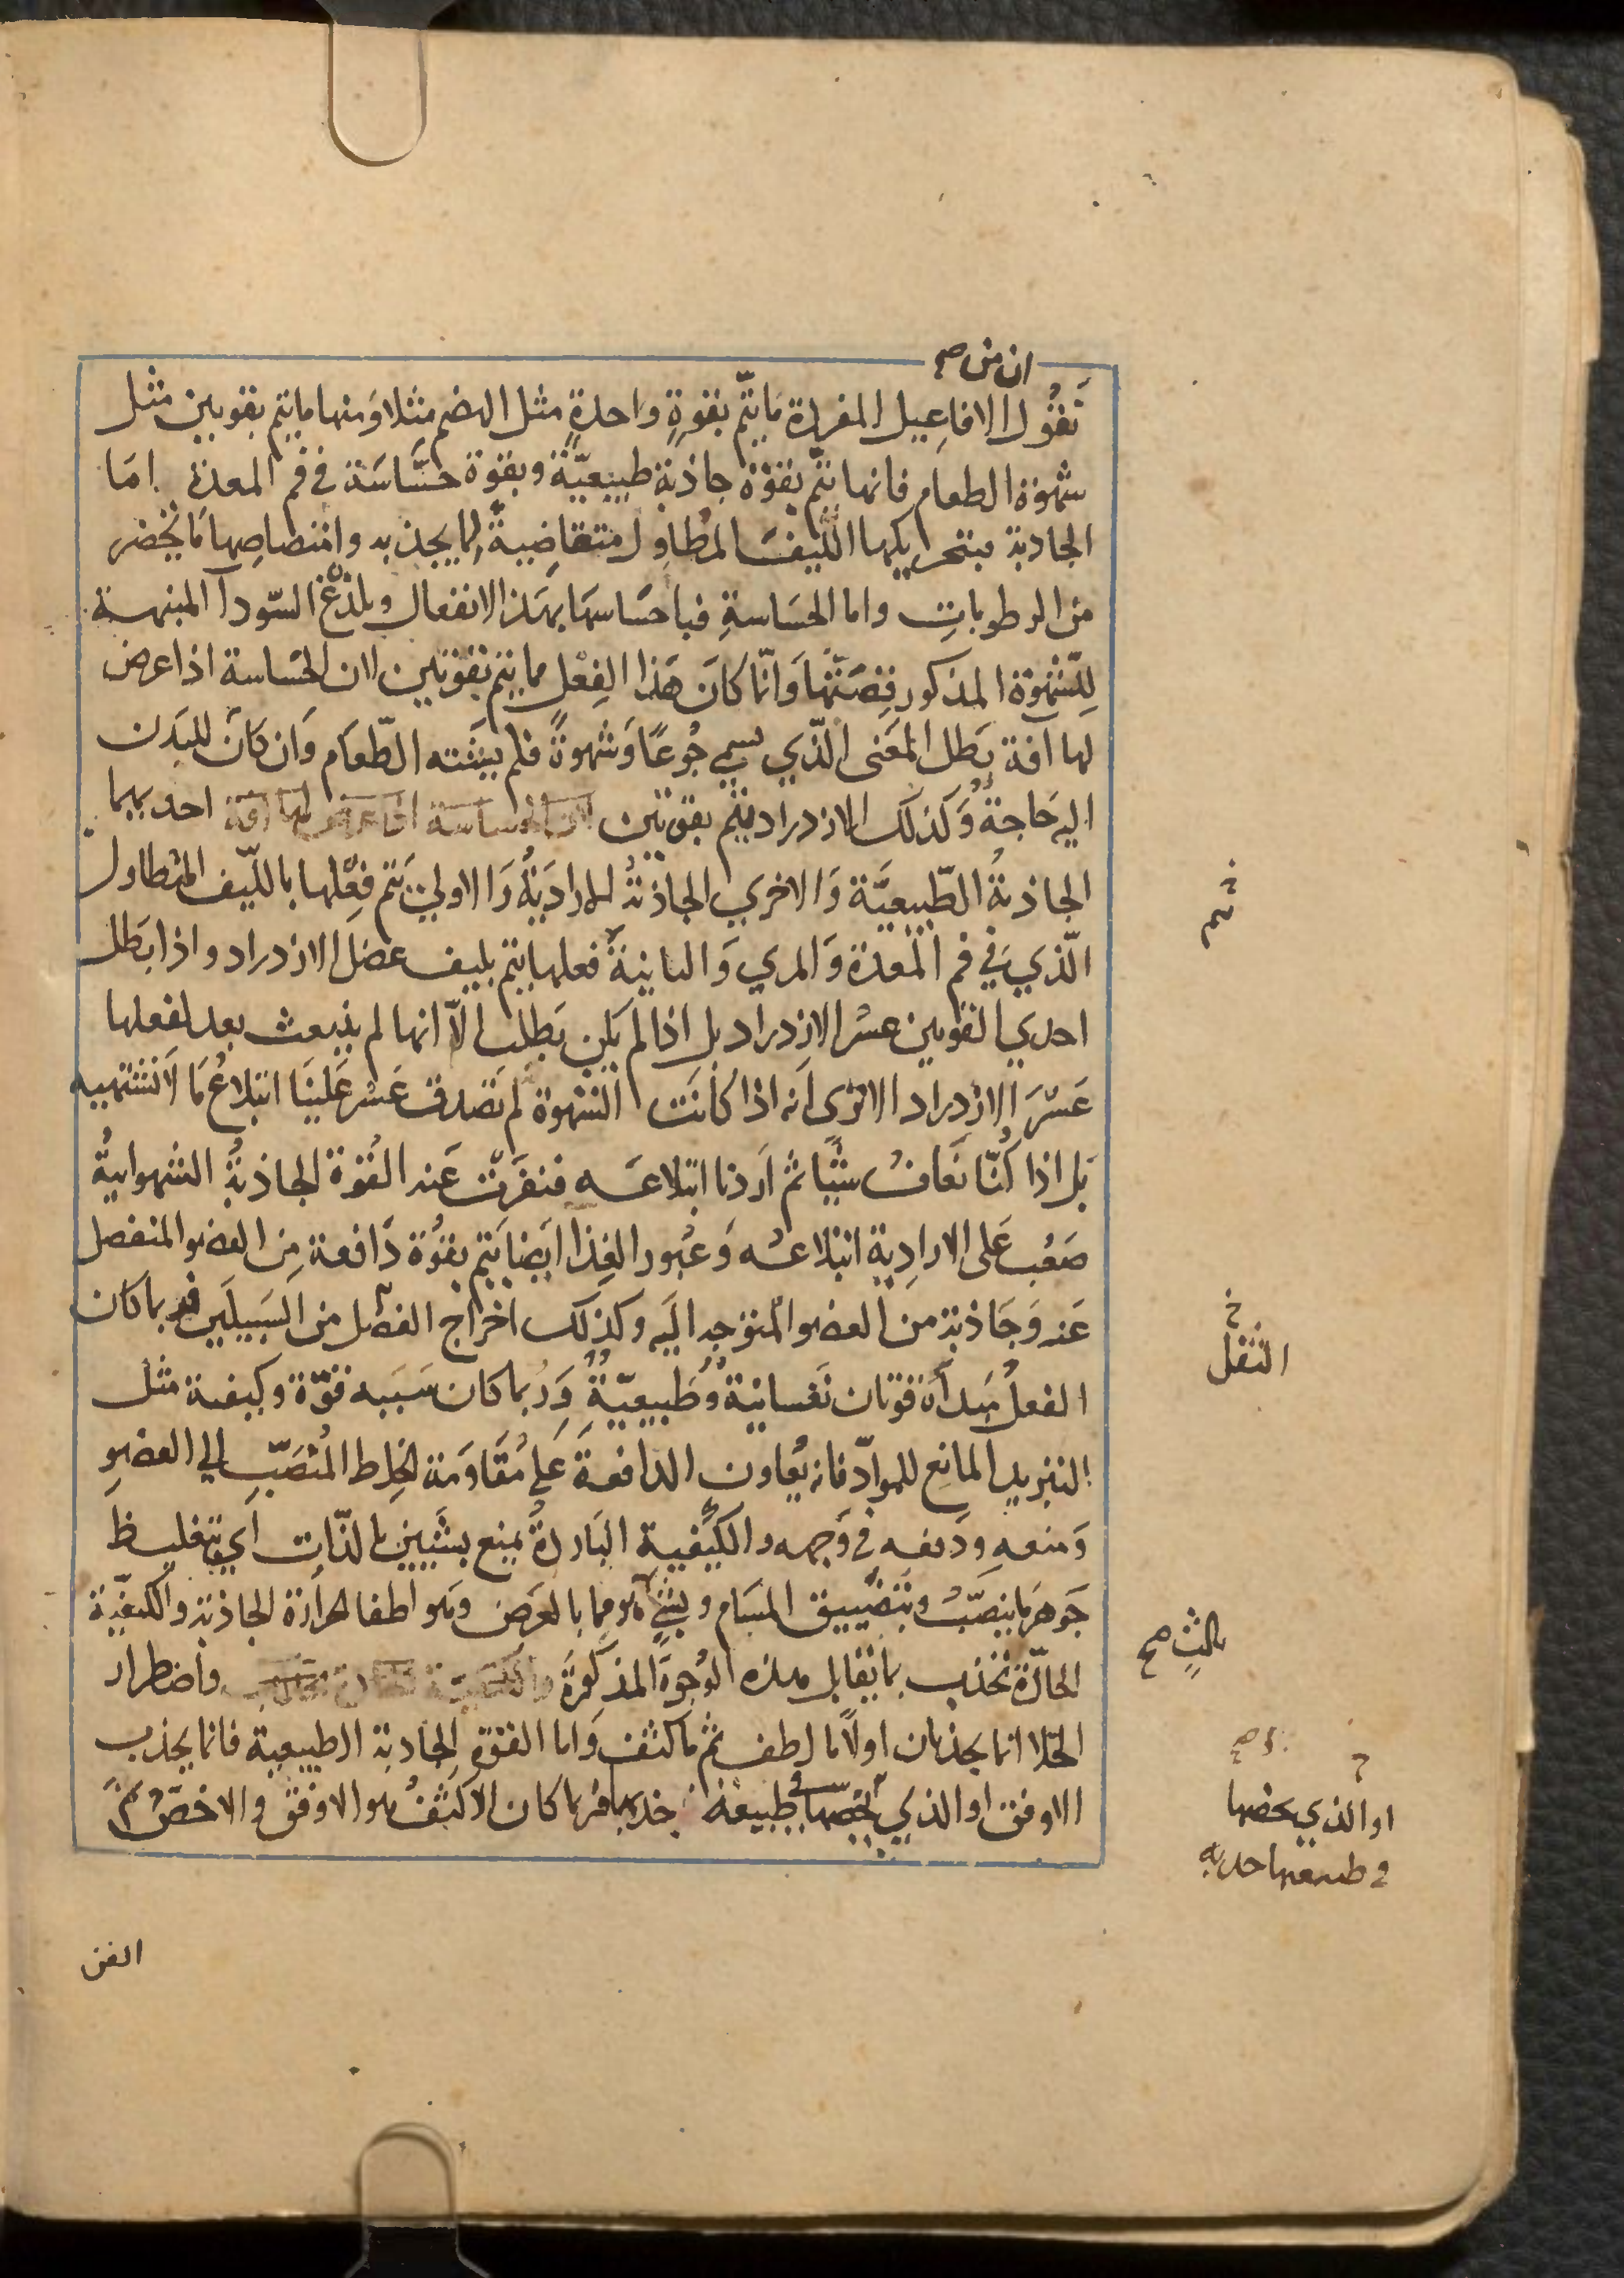 ان من صح
نَقُول الافاعيل المفردة مَا يتمّ بقوةٍ واحدةٍ مثل الهضم مثلا وَمنها ما يتم بقوتين مثل
شهوة الطعام فانها تتمّ بقوّة جاذبة طبيعيّة وبقوّة حسَّاسَة في فم المعدة امَا
الجاذبة فبتحريكها اللّيف المُطاول متقاضِيةً لما يجذبه وامتصاصِها مَا يحضر
من الرطوباتِ واما الحسَاسةِ فباحسَاسها بهَذا الانفعال وبلذْع السّودا المنبهة
لِلشهوة المذكور قصتّها وَانّما كانَ هَذا الفِعْل مما يتم بقوتين لان الحسّاسة اذا عرض
لها آفة بَطل المعَنى الّذي يسمي جُوعًا وَشهوةً فلم يشته الطّعَام وَان كانَ للبَدن
اليه حَاجةٌ وَكذلك الازدراد يتم بقوتين لان الحساسة اذا عرض لها افة احديهما
الجاذبةُ الطّبيعيَّة وَالاخري الجاذبةُ الاراديَةُ وَالاولي يتم فِعْلها باللّيف المُتطاول
الّذي في فم المعدة وَالمري وَالثانية فعلها يتم بليف عضل الازدراد واذا بَطل
احدي القوتين عسُر الازدراد بل اذا لم يكن بَطلت الاّ انها لم ينبعث بعد لفعلها
عَسُرَ الازدراد الا ترى انه اذا كانَت الشهوة لم تَصدق عَسُر عَلينَا ابتلاعُ مَا لا نشتهيه
بَل اذا كُنّا نَعَافُ شيًّا ثم اَردنا ابتلاعَه فنفرَت عَنه القُوة الجاذبَةُ الشهوانيةُ
صَعُب عَلى الارادِية ابتلاعُه وَعُبور الغِذا ايَضا يتم بقوُة دَافعة مِن العضو المنفصل
عَنه وَجَاذبة من العضو المتوجه اليَه وكذلك اخراج الفضل من السَبيلَين فربما كان
الفعلُ مَبدأه قوتان نَفسانية وَطَبيعيّةٌ وَرُبما كان سَبَبه قوّة وكيفية مثل
التبريد المانع للموادّ فانه يُعاون الدافعة عَلى مُقاوَمَة الخِلط المُنصَبّ الي العضو
وَمنعهِ ودَفعه في وَجهه والكيفية البَاردةُ يمنع بشَيين بالذّات اي بتغليظ
جَوهرَ ما ينصَبّ وبتَضْييق المسَام وبشي هو مما بالعرَض وَهو اطفا الحرَارة الجاذبَة والكيفيّة
الحَارّة تجذب بما يقابل هذه الوُجوهَ المذكورَةَ واضطرار
الخلا انما يجذبان اولاً ما لطف ثم ما كثف وَاما القوّة الجاذبة الطبيعية فانما يجذب
الاوفق او الذي يخصّها في طبيعة جذبها فربما كان الاكثفُ هو الاوفق والاخصّ تمّ
ثم
خ
الثفل
ثالثٍ صح
او الذي يخصها
في طبيعتها جذبه
الفن